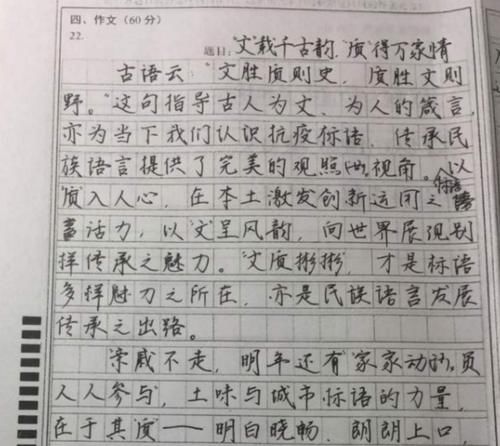 四、作文（60分）
22.
题目：“文”载千古韵，“质”得万家情
古语云：“文胜质则史，质胜文则
野。”这句指导古人为文、为人的箴言，
亦为当下我们认识抗疫标语，传承民
族语言提供了完美的观照视角。以
“质”入人心，在本土激发创新运用之标语
活力，以“文”呈风韵，向世界展现别
样传承之魅力。“文质彬彬”，才是标语
多样魅力之所在，亦是民族语言发展
传承之出路。
“亲戚不走，明年还有”“家家动员，
人人参与”，土味与城市标语的力量，
在于其“质”——明白晓畅，朗朗上口，